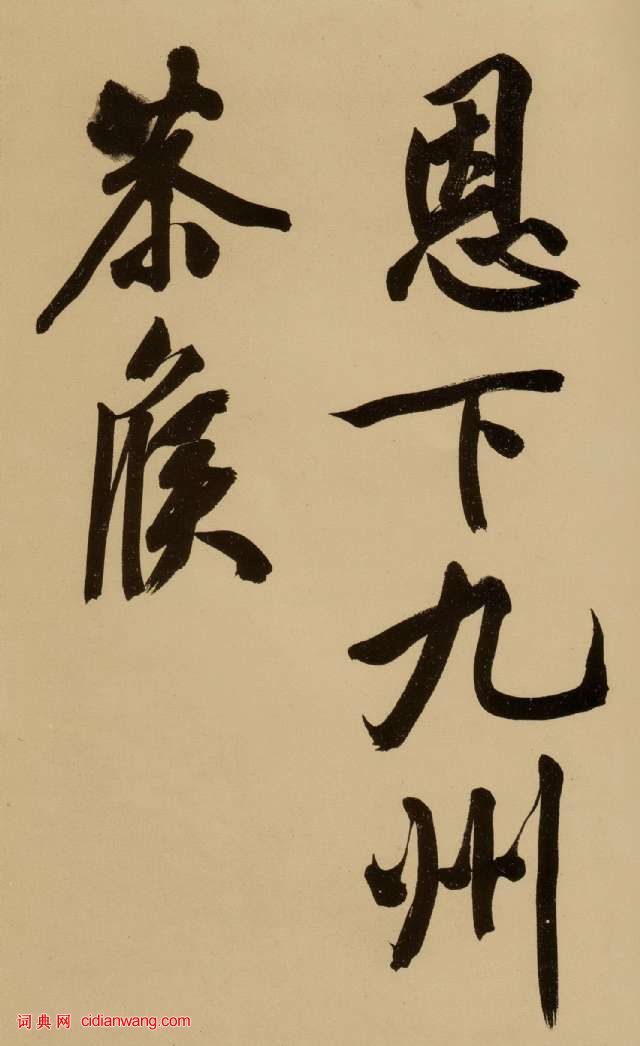 恩下九州
茶候
词典网 cidianwang.com